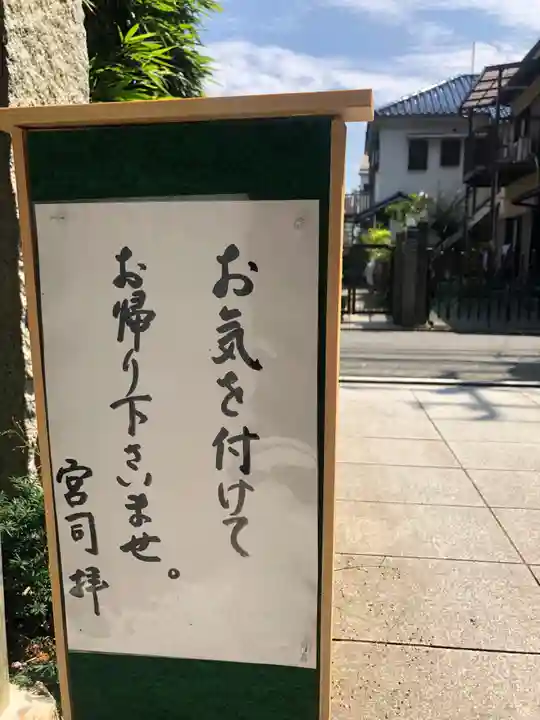 お気を付けて
お帰り下さいませ。
宮司 拝